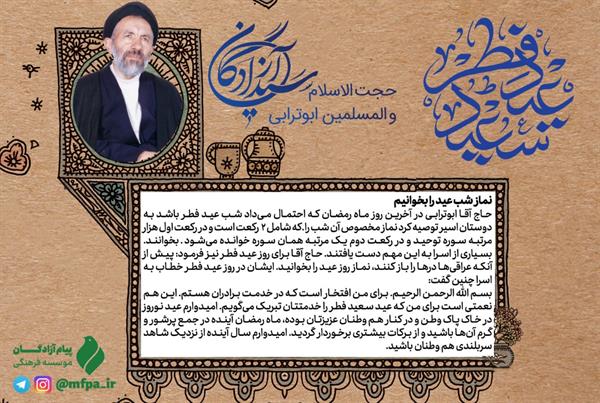 عید فطر
سعید
سید آزادگان
حجت الاسلام
والمسلمین ابوترابی
نماز شب عید را بخوانیم
حاج آقا ابوترابی در آخرین روز ماه رمضان که احتمال می‌داد شب عید فطر باشد به
دوستان اسیر توصیه کرد نماز مخصوص آن شب را.که شامل ۲ رکعت است و در رکعت اول هزار
مرتبه سوره توحید و در رکعت دوم یک مرتبه همان سوره خوانده می‌شود . بخوانند.
بسیاری از اسرا به این مهم دست یافتند. حاج آقا برای روز عید فطر نیز فرمود: پیش از
آنکه عراقی‌ها درها را باز کنند، نماز روز عید را بخوانید. ایشان در روز عید فطر خطاب به
اسرا چنین گفت:
بسم الله الرحمن الرحیم. برای من افتخار است که در خدمت برادران هستم. این هم
نعمتی است برای من که عید سعید فطر را خدمتتان تبریک می‌گویم. امیدوارم عید نوروز
در خاک پاک وطن و در کنار هم وطنان عزیزتان بوده، ماه رمضان آینده در جمع پرشور و
گرم آن‌ها باشید و از برکات بیشتری برخوردار گردید. امیدوارم سال آینده از نزدیک شاهد
سربلندی هم وطنان باشید.
پیام آزادگان
موسسه فرهنگی
@mfpa_ir